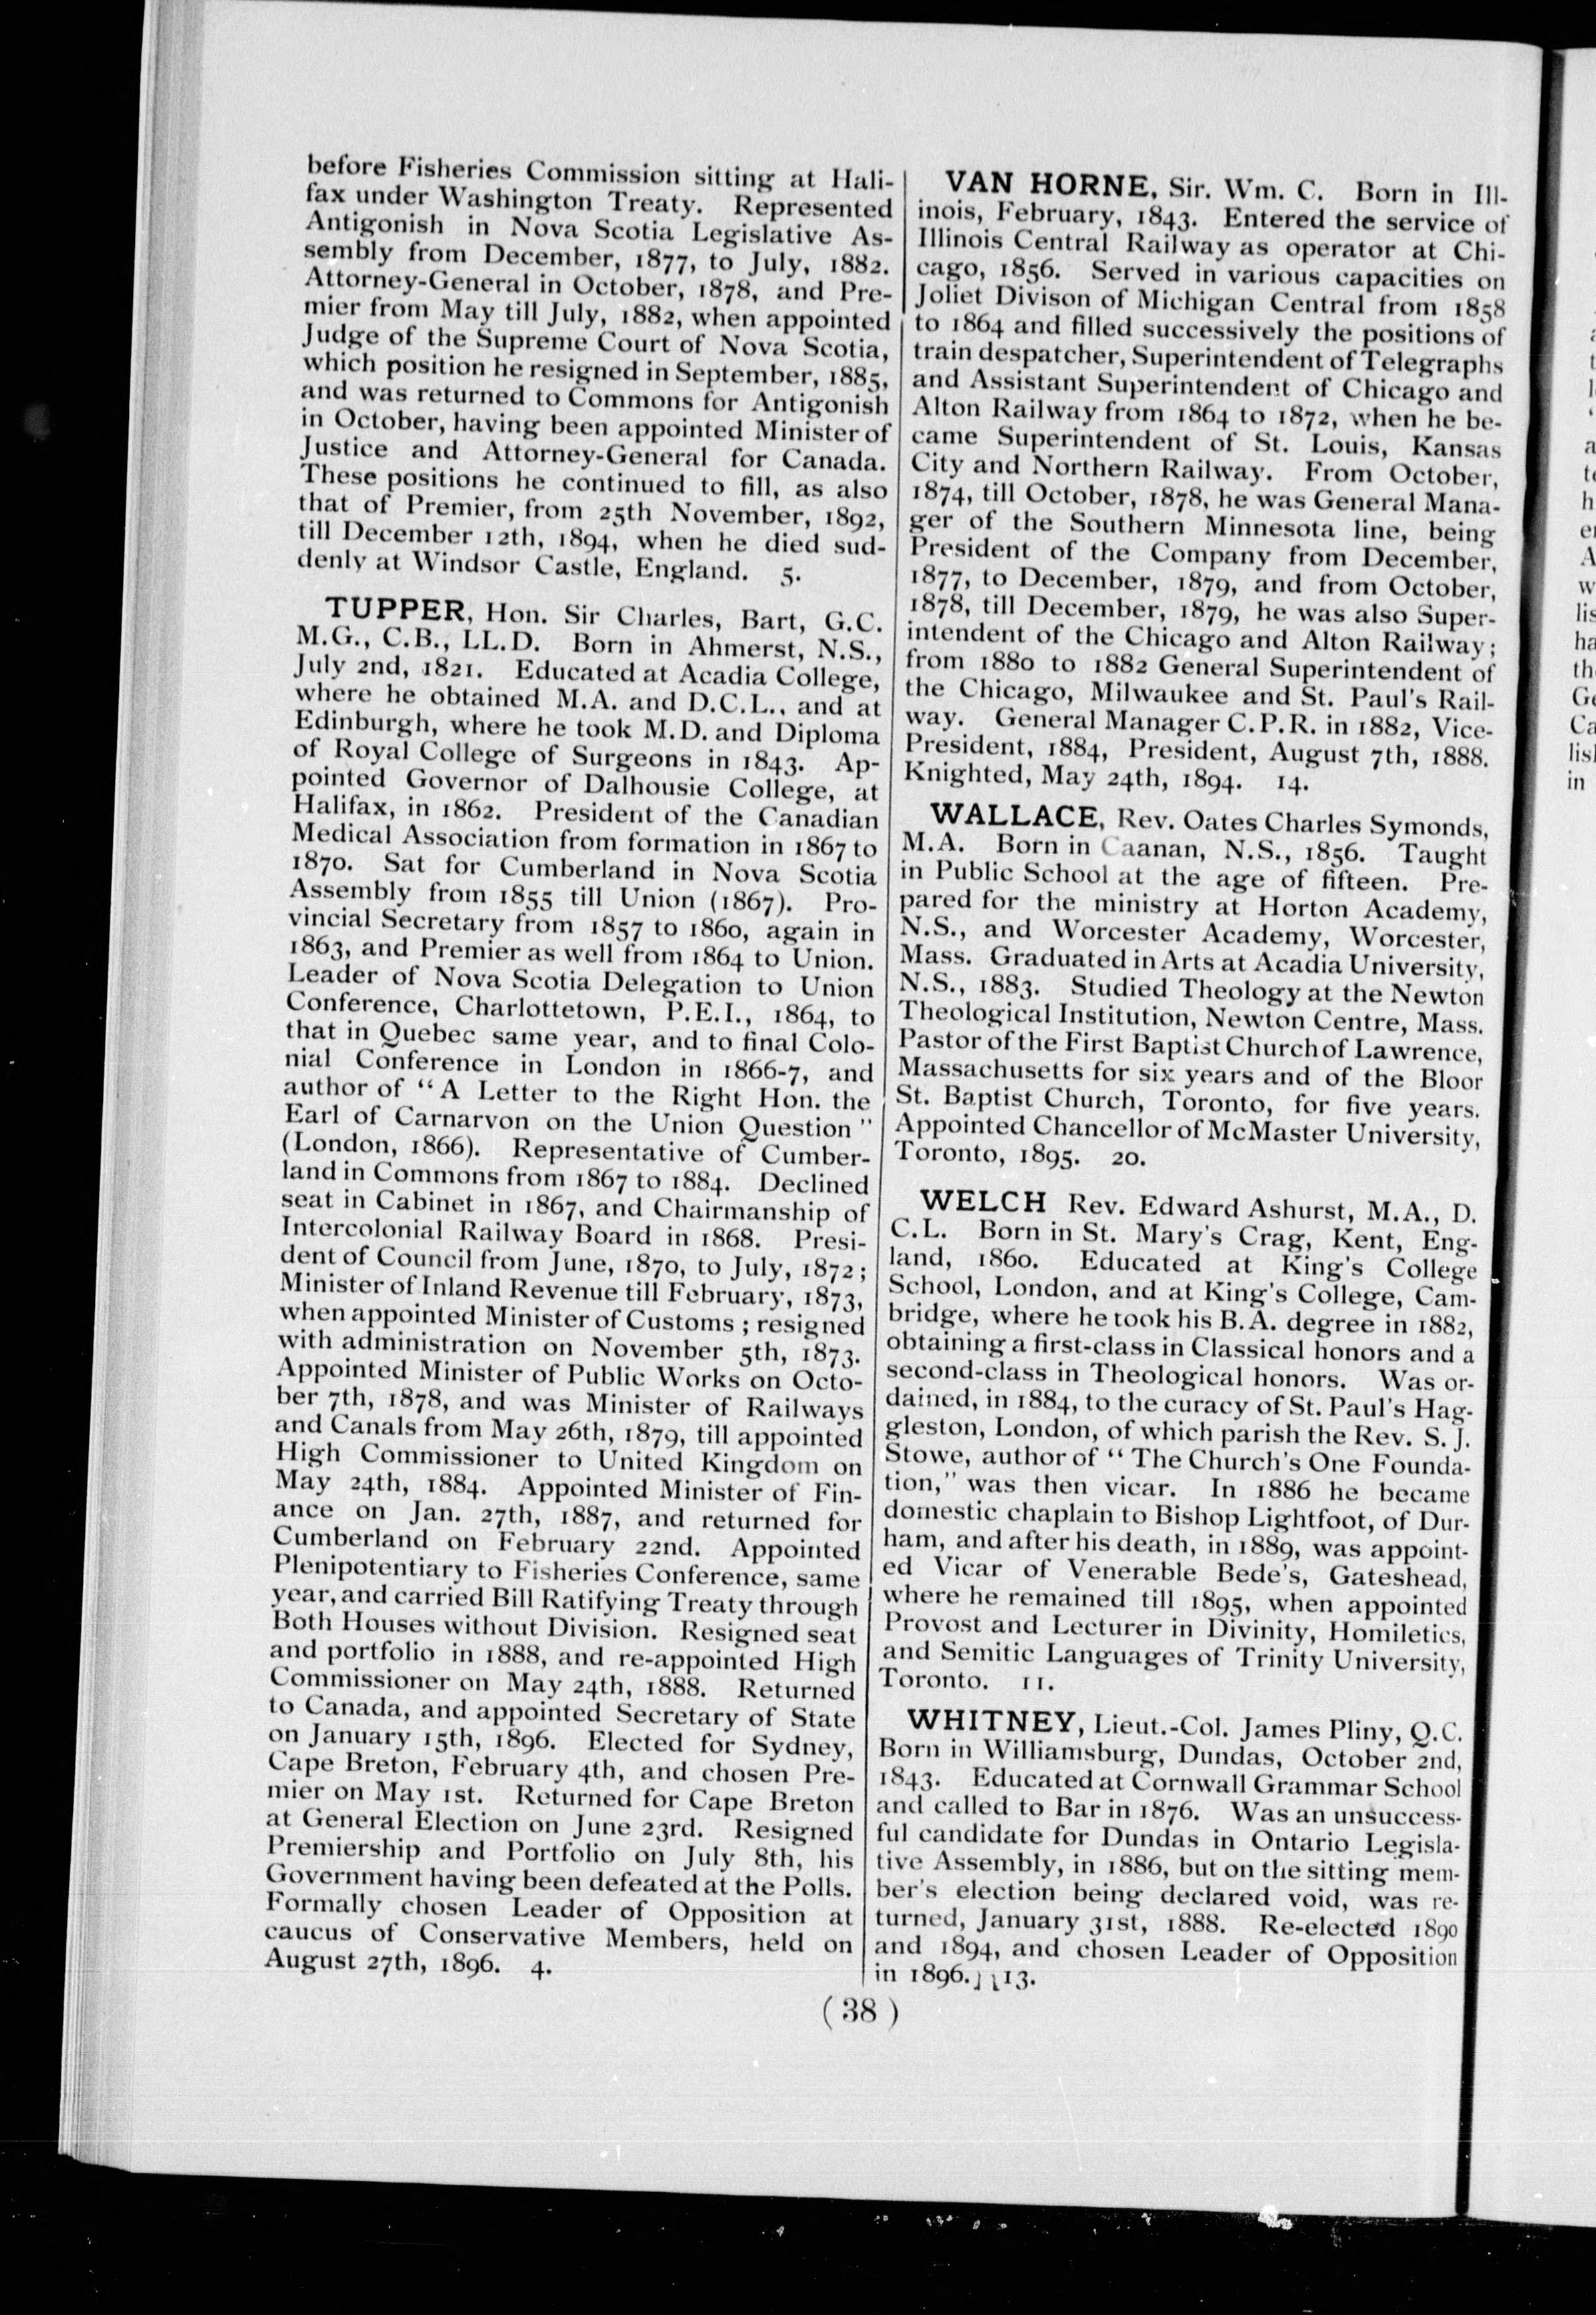 before Fisheries Commission sitting at Hali-
fax under Washington Treaty. Represented
Antigonish in Nova Scotia Legislative As-
sembly from December, 1877, to July, 1882.
Attorney-General in October, 1878, and Pre-
mier from May till July, 1882, when appointed
Judge of the Supreme Court of Nova Scotia,
which position he resigned in September, 1885,
and was returned to Commons for Antigonish
in October, having been appointed Minister of
Justice and Attorney-General for Canada.
These positions he continued to fill, as also
that of Premier, from 25th November, 1892,
till December 12th, 1894, when he died sud-
denly at Windsor Castle, England. 5.
TUPPER, Hon. Sir Charles, Bart, G.C.
M.G., C.B., LL.D. Born in Ahmerst, N.S.,
July 2nd, 1821. Educated at Acadia College,
where he obtained M.A. and D.C.L., and at
Edinburgh, where he took M.D. and Diploma
of Royal College of Surgeons in 1843. Ap-
pointed Governor of Dalhousie College, at
Halifax, in 1862. President of the Canadian
Medical Association from formation in 1867 to
1870. Sat for Cumberland in Nova Scotia
Assembly from 1855 till Union (1867). Pro-
vincial Secretary from 1857 to 1860, again in
1863, and Premier as well from 1864 to Union.
Leader of Nova Scotia Delegation to Union
Conference, Charlottetown, P.E.I., 1864, to
that in Quebec same year, and to final Colo-
nial Conference in London in 1866-7, and
author of "A Letter to the Right Hon. the
Earl of Carnarvon on the Union Question"
(London, 1866). Representative of Cumber-
land in Commons from 1867 to 1884. Declined
seat in Cabinet in 1867, and Chairmanship of
Intercolonial Railway Board in 1868. Presi-
dent of Council from June, 1870, to July, 1872;
Minister of Inland Revenue till February, 1873,
when appointed Minister of Customs; resigned
with administration on November 5th, 1873.
Appointed Minister of Public Works on Octo-
ber 7th, 1878, and was Minister of Railways
and Canals from May 26th, 1879, till appointed
High Commissioner to United Kingdom on
May 24th, 1884. Appointed Minister of Fin-
ance on Jan. 27th, 1887, and returned for
Cumberland on February 22nd. Appointed
Plenipotentiary to Fisheries Conference, same
year, and carried Bill Ratifying Treaty through
Both Houses without Division. Resigned seat
and portfolio in 1888, and re-appointed High
Commissioner on May 24th, 1888. Returned
to Canada, and appointed Secretary of State
on January 15th, 1896. Elected for Sydney,
Cape Breton, February 4th, and chosen Pre-
mier on May 1st. Returned for Cape Breton
at General Election on June 23rd. Resigned
Premiership and Portfolio on July 8th, his
Government having been defeated at the Polls.
Formally chosen Leader of Opposition at
caucus of Conservative Members, held on
August 27th, 1896. 4.
VAN HORNE, Sir. Wm. C. Born in Ill-
inois, February, 1843. Entered the service of
Illinois Central Railway as operator at Chi-
cago, 1856. Served in various capacities on
Joliet Divison of Michigan Central from 1858
to 1864 and filled successively the positions of
train despatcher, Superintendent of Telegraphs
and Assistant Superintendent of Chicago and
Alton Railway from 1864 to 1872, when he be-
came Superintendent of St. Louis, Kansas
City and Northern Railway. From October,
1874, till October, 1878, he was General Mana-
ger of the Southern Minnesota line, being
President of the Company from December,
1877, to December, 1879, and from October,
1878, till December, 1879, he was also Super-
intendent of the Chicago and Alton Railway;
from 1880 to 1882 General Superintendent of
the Chicago, Milwaukee and St. Paul's Rail-
way. General Manager C.P.R. in 1882, Vice-
President, 1884, President, August 7th, 1888.
Knighted, May 24th, 1894. 14.
WALLACE, Rev. Oates Charles Symonds,
M.A. Born in Caanan, N.S., 1856. Taught
in Public School at the age of fifteen. Pre-
pared for the ministry at Horton Academy,
N.S., and Worcester Academy, Worcester,
Mass. Graduated in Arts at Acadia University,
N.S., 1883. Studied Theology at the Newton
Theological Institution, Newton Centre, Mass.
Pastor of the First Baptist Church of Lawrence,
Massachusetts for six years and of the Bloor
St. Baptist Church, Toronto, for five years.
Appointed Chancellor of McMaster University,
Toronto, 1895. 20.
WELCH Rev. Edward Ashurst, M.A., D.
C.L. Born in St. Mary's Crag, Kent, Eng-
land, 1860. Educated at King's College
School, London, and at King's College, Cam-
bridge, where he took his B.A. degree in 1882,
obtaining a first-class in Classical honors and a
second-class in Theological honors. Was or-
dained, in 1884, to the curacy of St. Paul's Hag-
gleston, London, of which parish the Rev. S. J.
Stowe, author of "The Church's One Founda-
tion," was then vicar. In 1886 he became
domestic chaplain to Bishop Lightfoot, of Dur-
ham, and after his death, in 1889, was appoint-
ed Vicar of Venerable Bede's, Gateshead,
where he remained till 1895, when appointed
Provost and Lecturer in Divinity, Homiletics,
and Semitic Languages of Trinity University,
Toronto. 11.
WHITNEY, Lieut.-Col. James Pliny, Q.C.
Born in Williamsburg, Dundas, October 2nd,
1843. Educated at Cornwall Grammar School
and called to Bar in 1876. Was an unsuccess-
ful candidate for Dundas in Ontario Legisla-
tive Assembly, in 1886, but on the sitting mem-
ber's election being declared void, was re-
turned, January 31st, 1888. Re-elected 1890
and 1894, and chosen Leader of Opposition
in 1896. 13.
(38)